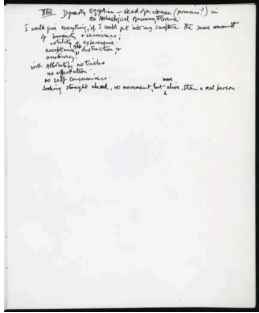 XIII Dynasty Egyptian – Head of a woman (princess?) in
the Archaeological Museum, Florence.
I would give everything, if I could get into my sculpture the same amount
of humanity & seriousness;
nobility & experience
acceptance of distraction,
with absolutely no tricks
no affectation
no self consciousness
looking straight ahead, no movement, but more alive, than a real person